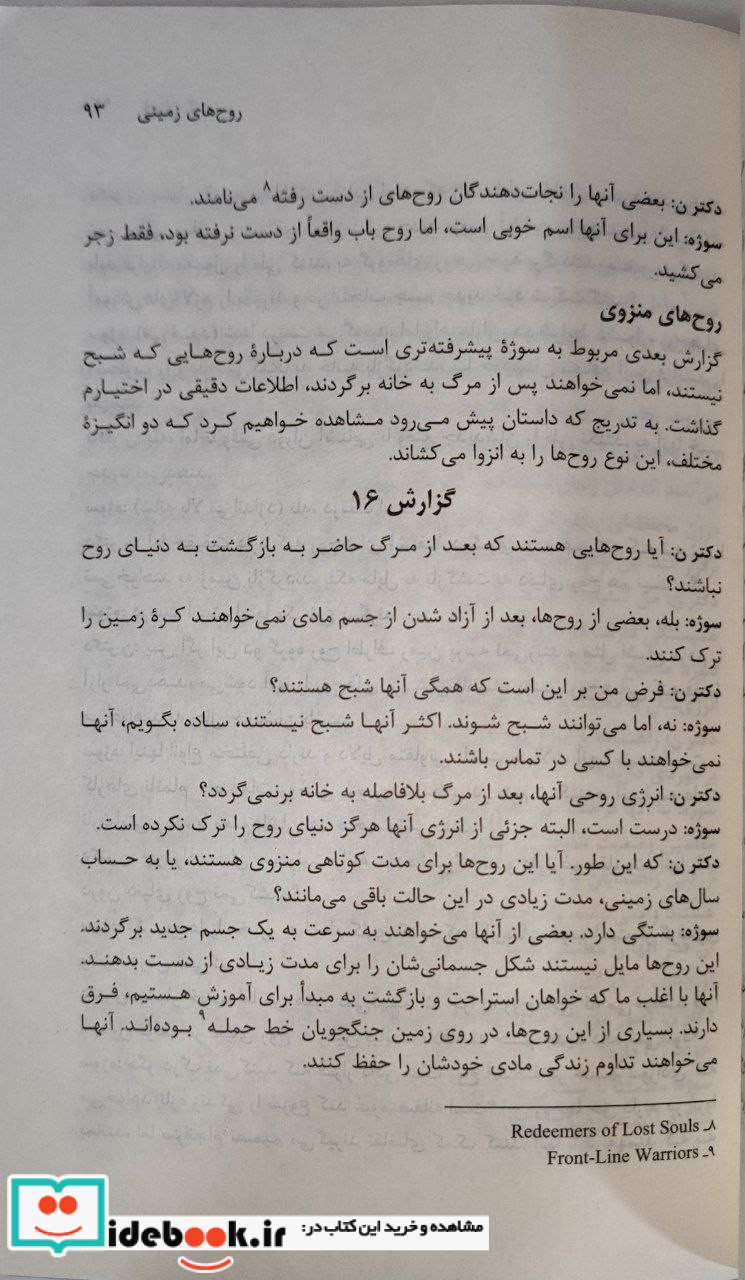 روح‌های زمینی ۹۳
دکتر ن: بعضی آنها را نجات‌دهندگان روح‌های از دست رفته۸ می‌نامند.
سوژه: این برای آنها اسم خوبی است، اما روح باب واقعاً از دست نرفته بود، فقط زجر
می‌کشید.
روح‌های منزوی
گزارش بعدی مربوط به سوژهٔ پیشرفته‌تری است که دربارهٔ روح‌هایی که شبح
نیستند، اما نمی‌خواهند پس از مرگ به خانه برگردند، اطلاعات دقیقی در اختیارم
گذاشت. به تدریج که داستان پیش می‌رود مشاهده خواهیم کرد که دو انگیزهٔ
مختلف، این نوع روح‌ها را به انزوا می‌کشاند.
گزارش ۱۶
دکتر ن: آیا روح‌هایی هستند که بعد از مرگ حاضر به بازگشت به دنیای روح
نباشند؟
سوژه: بله، بعضی از روح‌ها، بعد از آزاد شدن از جسم مادی نمی‌خواهند کرهٔ زمین را
ترک کنند.
دکتر ن: فرض من بر این است که همگی آنها شبح هستند؟
سوژه: نه، اما می‌توانند شبح شوند. اکثر آنها شبح نیستند، ساده بگویم، آنها
نمی‌خواهند با کسی در تماس باشند.
دکتر ن: انرژی روحی آنها، بعد از مرگ بلافاصله به خانه برنمی‌گردد؟
سوژه: درست است، البته جزئی از انرژی آنها هرگز دنیای روح را ترک نکرده است.
دکتر ن: که این طور. آیا این روح‌ها برای مدت کوتاهی منزوی هستند، یا به حساب
سال‌های زمینی، مدت زیادی در این حالت باقی می‌مانند؟
سوژه: بستگی دارد. بعضی از آنها می‌خواهند به سرعت به یک جسم جدید برگردند.
این روح‌ها مایل نیستند شکل جسمانی‌شان را برای مدت زیادی از دست بدهند.
آنها با اغلب ما که خواهان استراحت و بازگشت به مبدأ برای آموزش هستیم، فرق
دارند. بسیاری از این روح‌ها، در روی زمین جنگجویان خط حمله۹ بوده‌اند. آنها
می‌خواهند تداوم زندگی مادی خودشان را حفظ کنند.
۸ـ Redeemers of Lost Souls
۹ـ Front-Line Warriors
idebook.ir مشاهده و خرید این کتاب در: